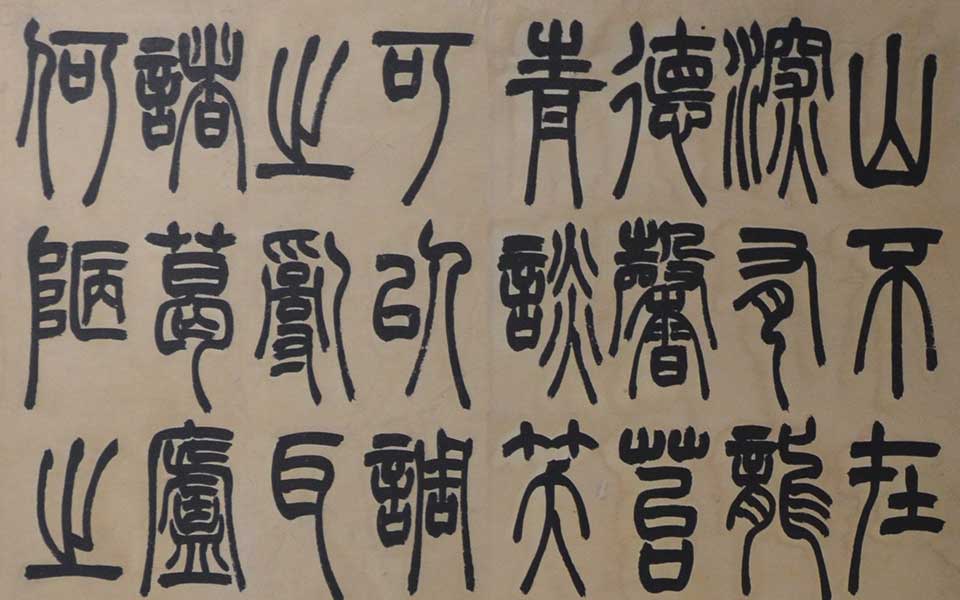 山不在
深有龍
德馨苔
青談笑
可以調
之亂耳
諸葛廬
何陋之